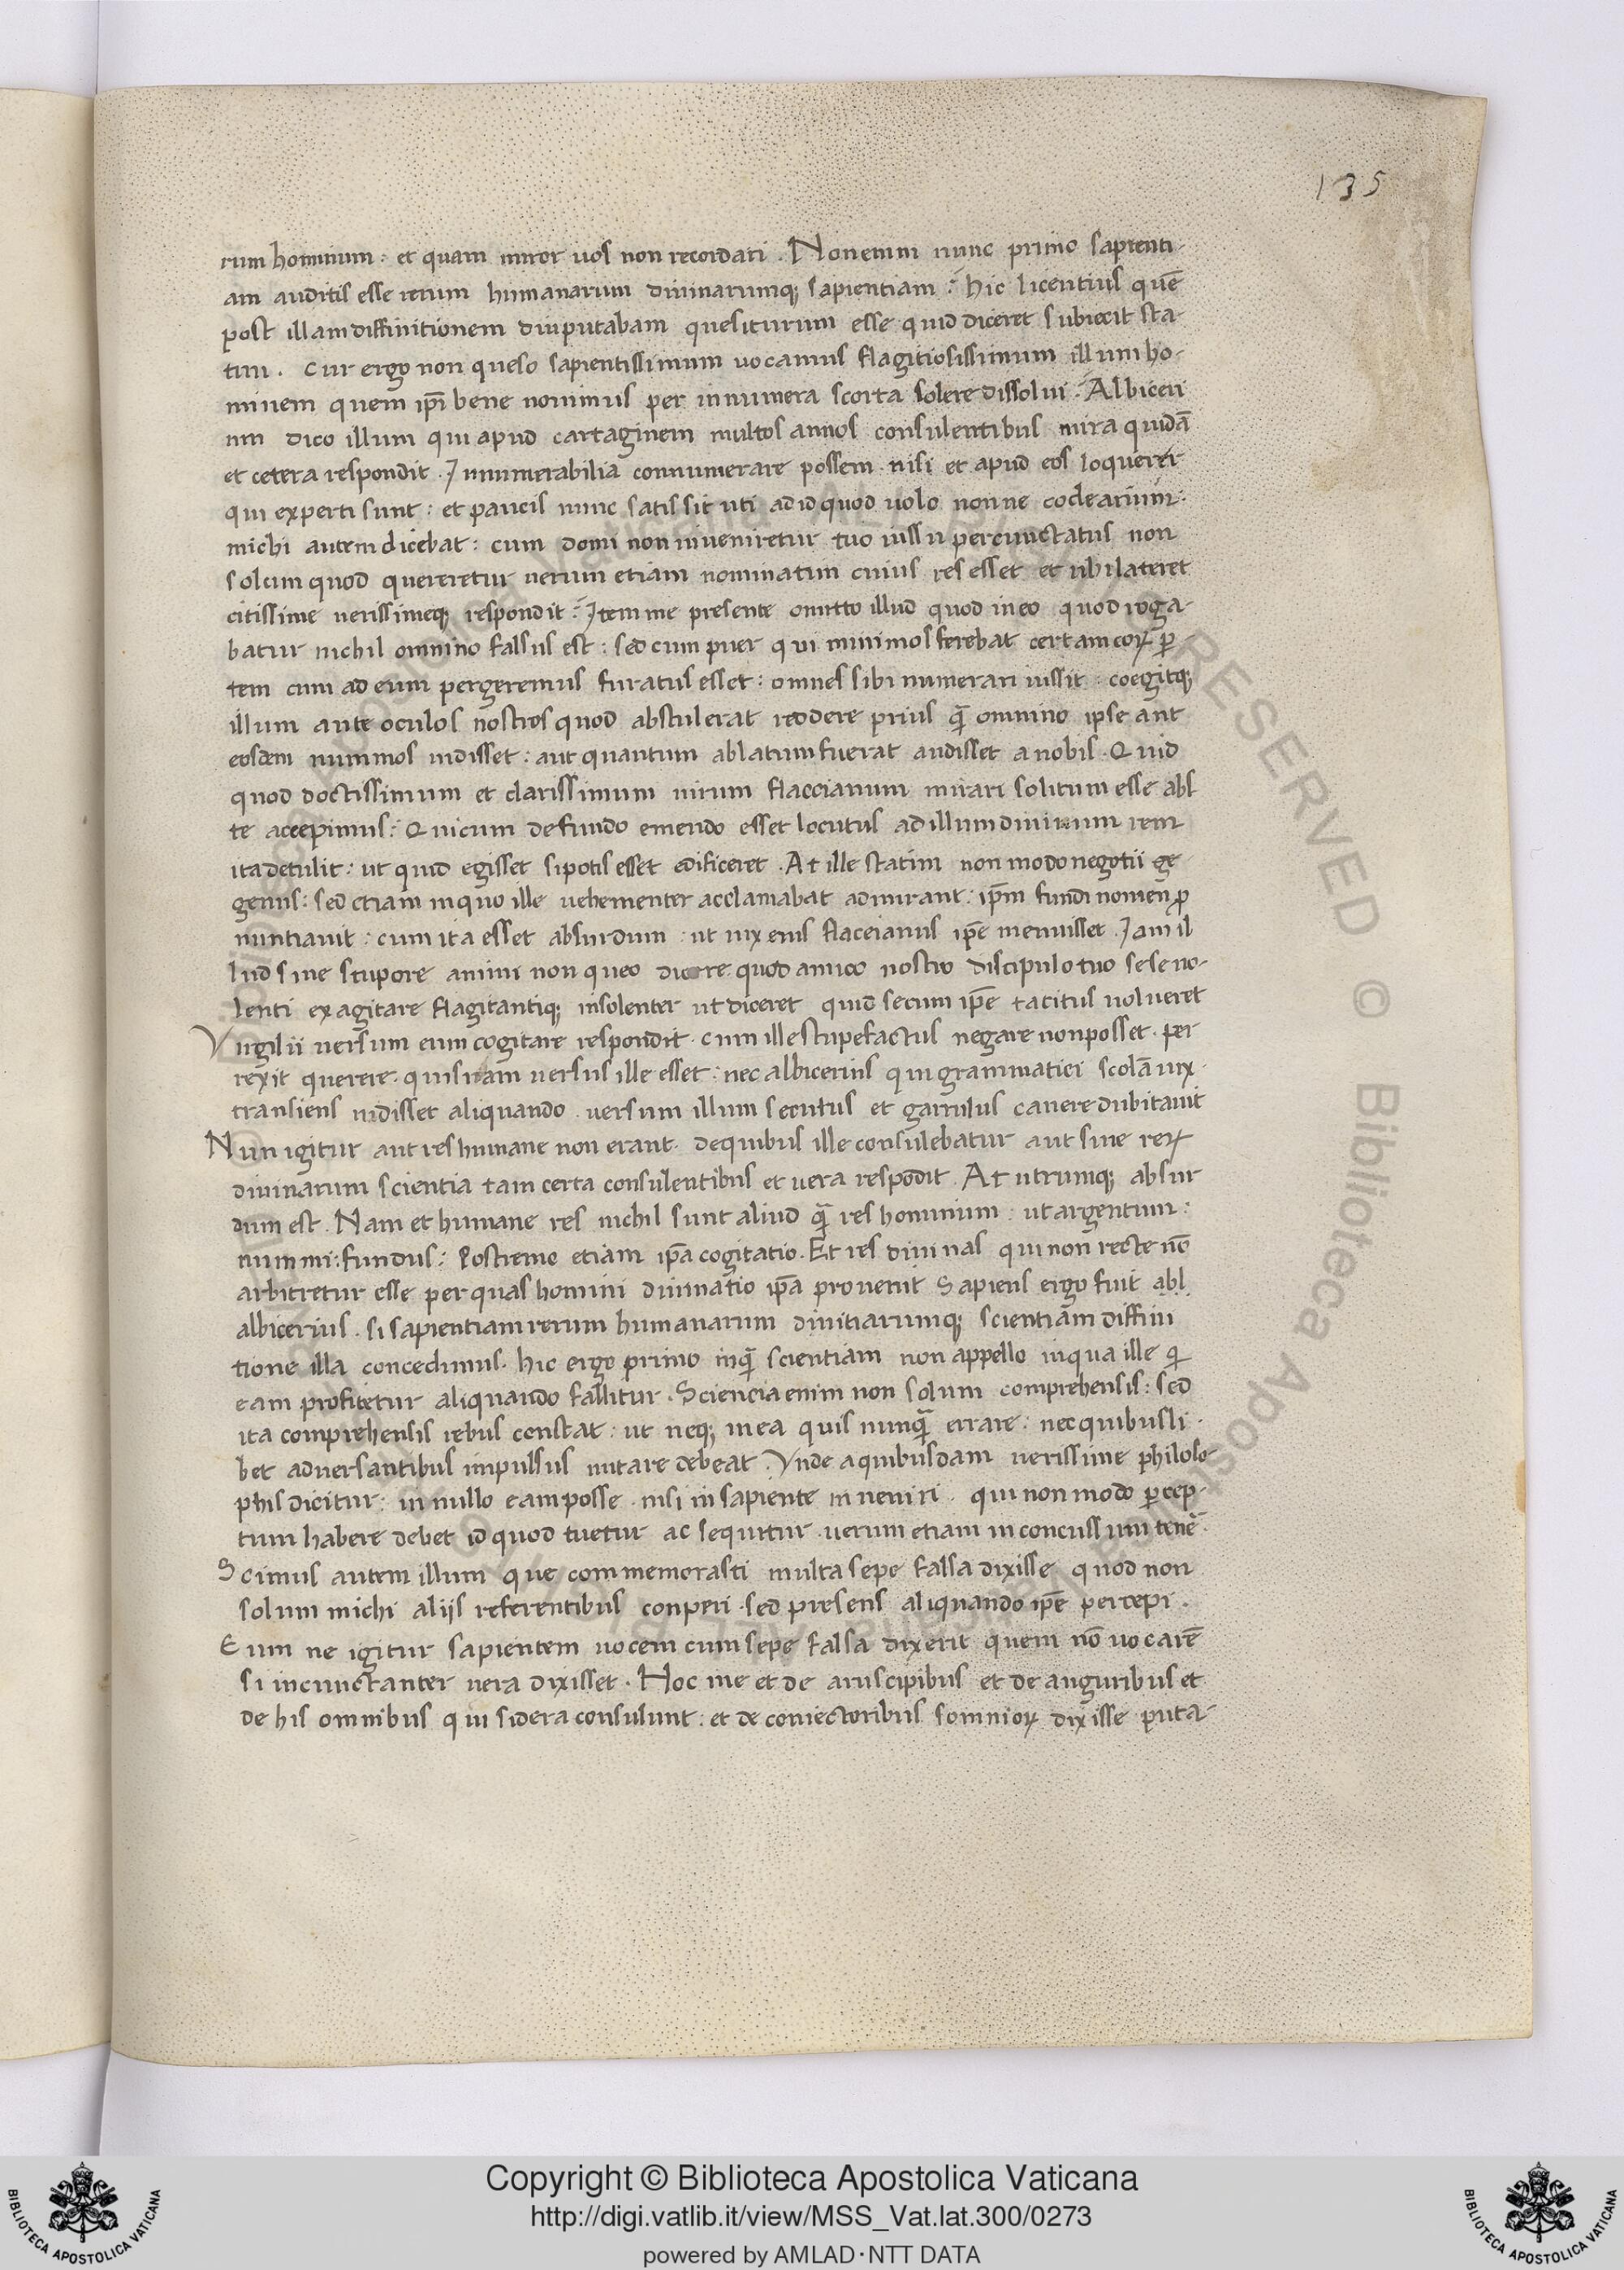 135
rum hominum : et quam miror uos non recordari . Non enim nunc primo sapienti-
am auditis esse rerum humanarum diuinarumq; sapientiam : hic licentius quē
post illam diffinitionem diuputabam quesiturum esse quid diceret subiecit sta-
tim . cur ergo non queso sapientissimum uocamus flagitiosissimum illum ho-
minem quem ip̄i bene nouimus per innumera scorta solere dissolui . Albiceri
um dico illum qui apud cartaginem multos annos consulentibus mira quidā
et cetera respondit . Innumerabilia connumerare possem nisi et apud eos loquerer
qui experti sunt : et paucis nunc satis sit uti ad id quod uolo nonne coclearium .
michi autem dicebat : cum domi non inueniretur tuo iussu percunctatus non
solum quod quereretur uerum etiam nominatim cuius res esset et ubi lateret
citissime uerissimeq; respondit : Item me presente omitto illud quod in eo quod roga-
batur nichil omnino falsus est : sed cum puer qui nummos ferebat certam eoꝝ ꝑ-
tem cum ad eum pergeremus furatus esset : omnes sibi numerari iussit : coegitq;
illum ante oculos nostros quod abstulerat reddere prius q̄ omnino ipse aut
eosdem nummos uidisset : aut quantum ablatum fuerat audisset a nobis . Quid
quod doctissimum et clarissimum uirum flaccianum mirari solitum esse abs
te accepimus : Qui cum de fundo emendo esset locutus ad illum diuinum rem
ita detulit : ut quid egisset si potis esset edificeret . At ille statim non modo negotii ge
genus : sed etiam in quo ille uehementer acclamabat admirant : ip̄m fundi nomen ꝓ
nuntiauit : cum ita esset absurdum : ut uix eius flaccianus ip̄e meminisset . Iam il
lud sine stupore animi non queo dicere quod amico nostro discipulo tuo sese uo-
lenti exagitare flagitantiq; insolenter ut diceret quid secum ip̄e tacitus uolueret
Virgilii uersum eum cogitare respondit . cum ille stupefactus negare non posset . per
rexit querere . quisnam uersus ille esset : nec albicerius qui grammatici scolā uix .
transiens uidisset aliquando . uersum illum securus et garrulus canere dubitauit
Nun igitur aut res humane non erant . de quibus ille consulebatur aut sine reꝝ
diuinarum scientia tam certa consulentibus et uera respōdit . At utrumq; absur
dum est . Nam et humane res nichil sunt aliud q̄ res hominum : ut argentum :
nummi : fundus : Postremo etiam ip̄a cogitatio . Et res diuinas qui non recte nō
arbitretur esse per quas homini diuinatio ip̄a prouenit Sapiens ergo fuit abl
albicerius . si sapientiam rerum humanarum diuitiarumq; scientiam diffini
tione illa concedimus . hic ergo primo inq̄ scientiam non appello in qua ille q̄
eam profitetur aliquando fallitur . Sciencia enim non solum comprehensis : sed
ita comprehensis rebus constat : ut neq; in ea quis nunq̄ errare : nec quibusli .
bet aduersantibus impulsus nutare debeat . Vnde a quibusdam uerissime philoso
phis dicitur : in nullo eam posse . nisi in sapiente inueniri . qui non modo ꝑcep-
tum habere debet id quod tuetur ac sequitur . uerum etiam inconcussum tenē .
Scimus autem illum que commemorasti multa sepe falsa dixisse quod non
solum michi alijs referentibus conperi . sed presens aliquando ip̄e percepi .
Eum ne igitur sapientem uocem cum sepe falsa dixerit quem nō uocarē
si incunctanter uera dixisset . Hoc me et de aruscipibus et de auguribus et
de his omnibus qui sidera consulunt : et de coniectoribus somnioꝝ dixisse puta-
Copyright © Biblioteca Apostolica Vaticana
http://digi.vatlib.it/view/MSS_Vat.lat.300/0273
powered by AMLAD·NTT DATA